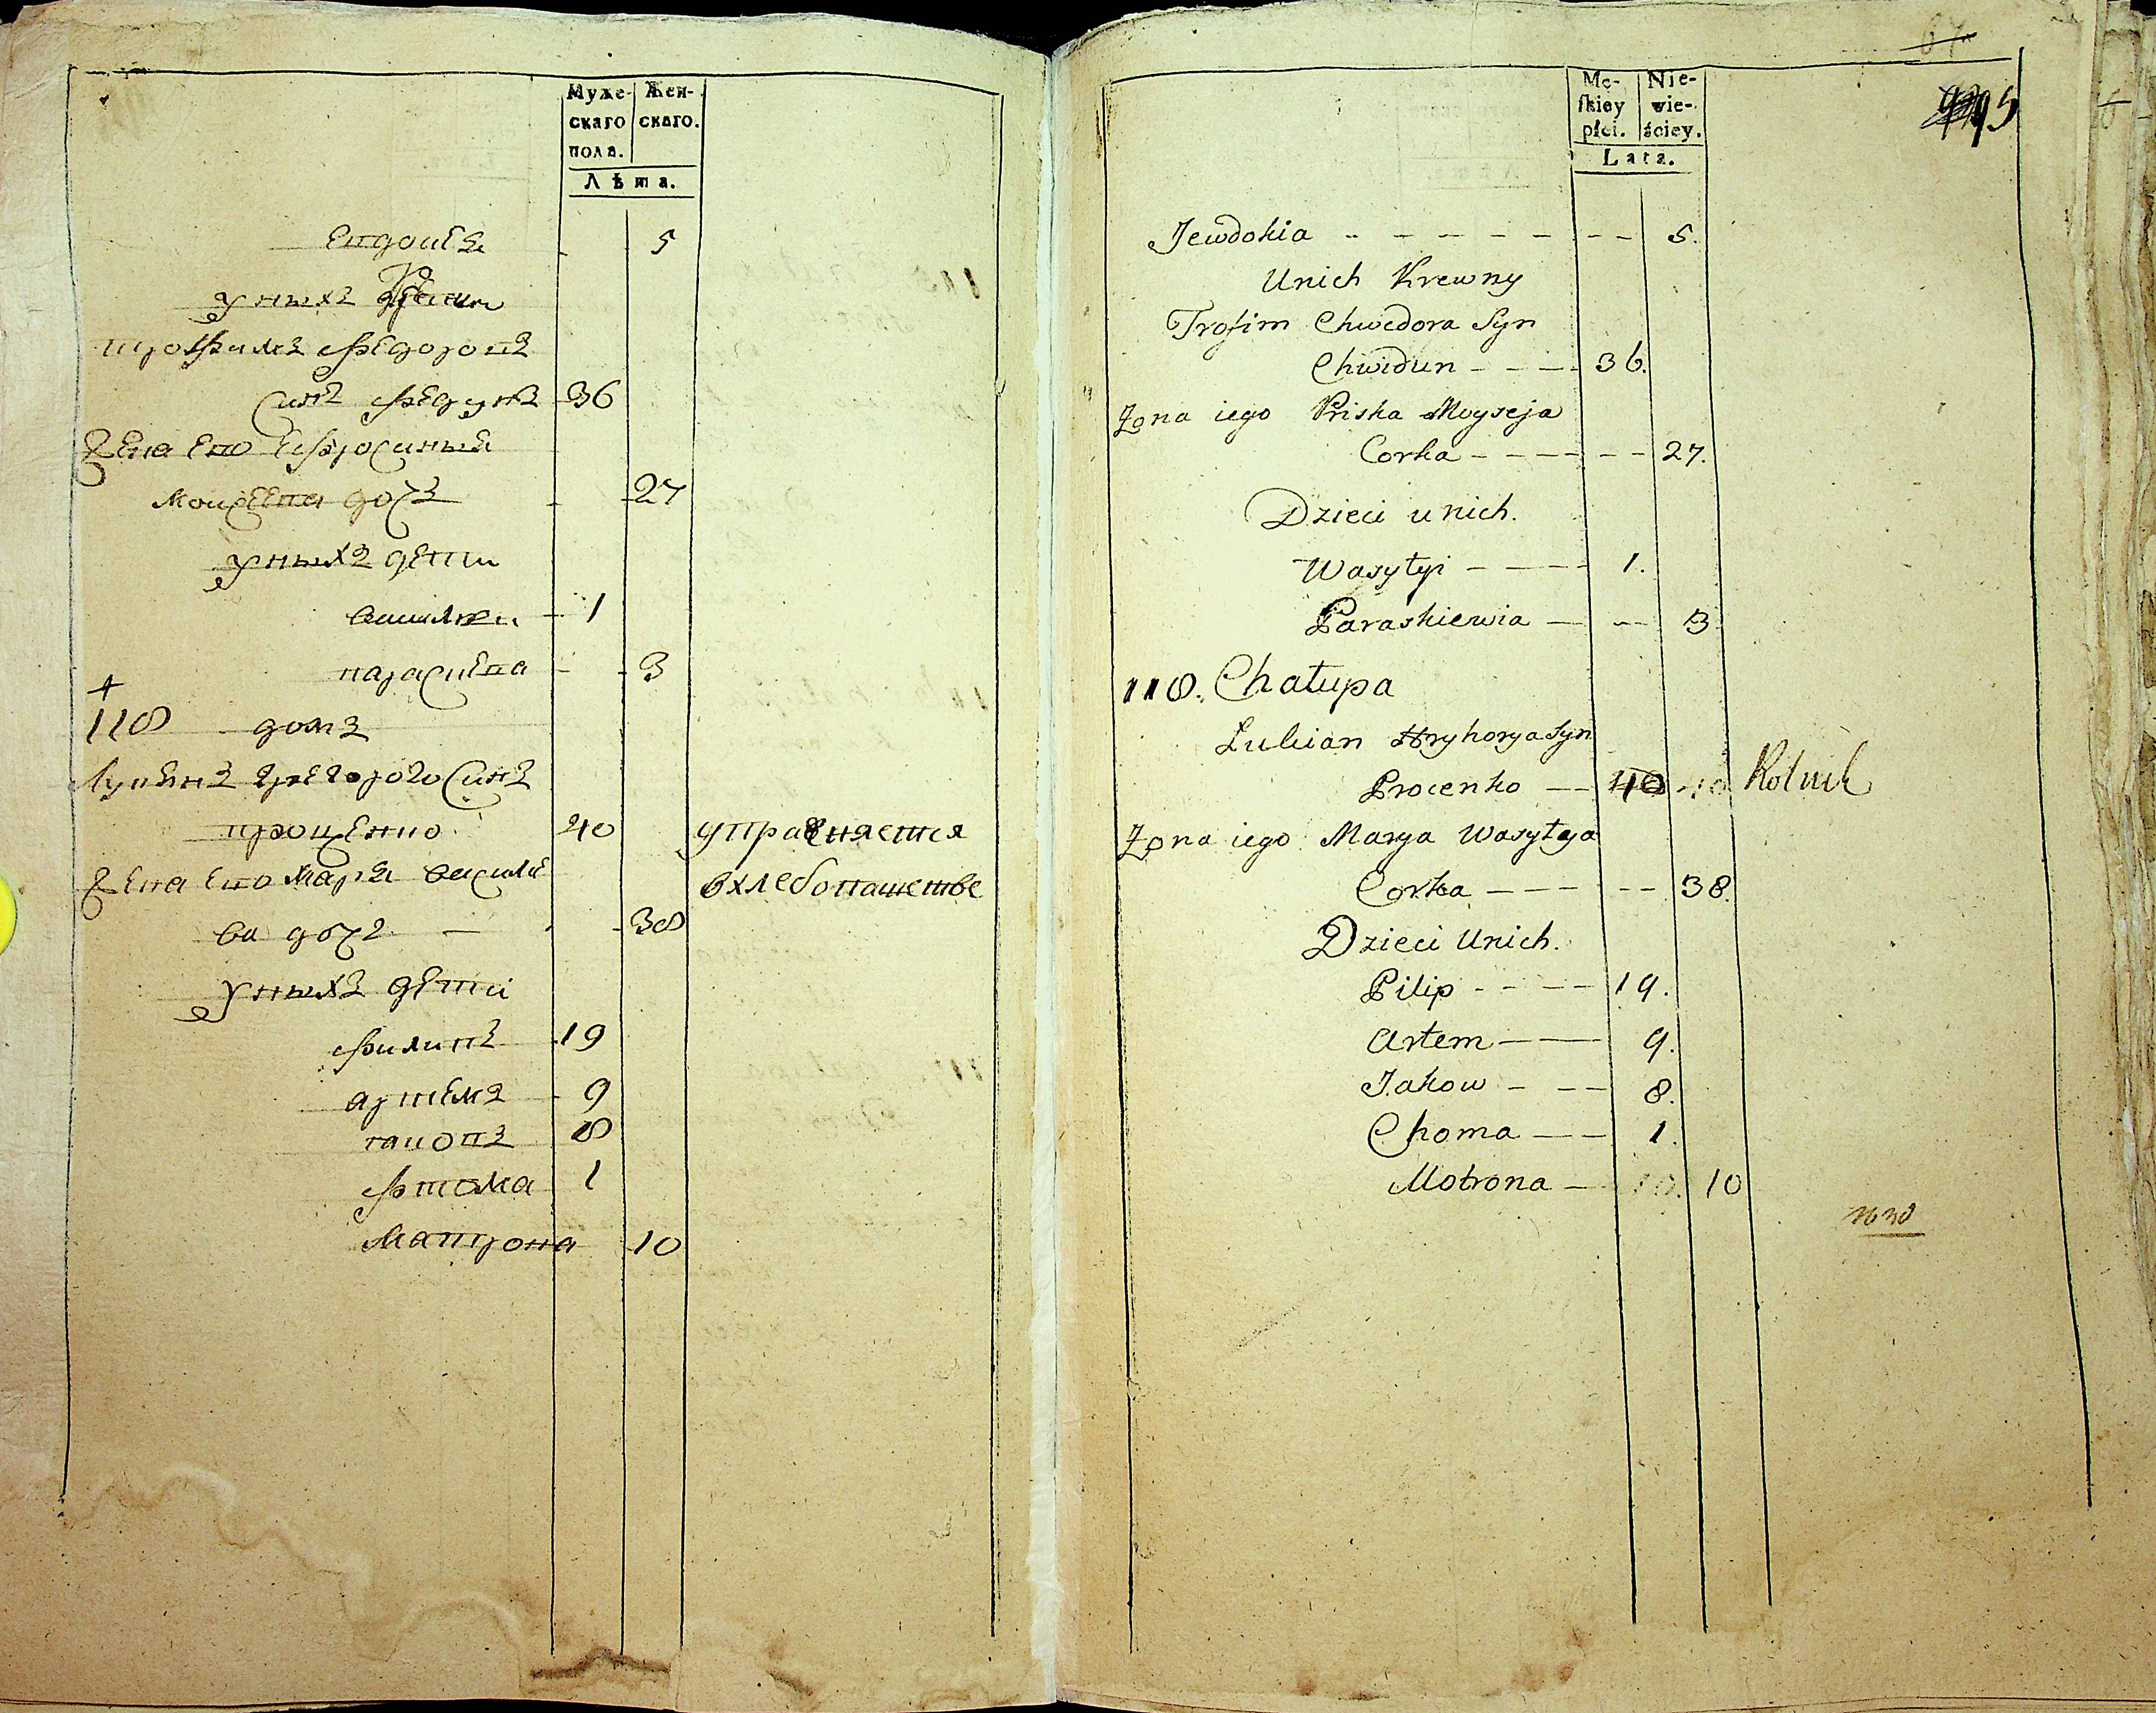 Муже- Жен-
скаго скаго.
пола.
Лѣта.
Евдокія 5
унихъ
трофимъ федоровъ
Синъ федунъ 36
Жена Его Ефросинья
Моисеева дочъ 27
унихъ дети
василеи 1
параскева 3
118 домъ
Лукянъ григорого Синъ
проценко 40 управняется
Жена Его Марья василе вхлебопашестве
ва дочъ 38
унихъ дети
филипъ 19
артемъ 9
таковъ 8
фтома 1
Матрона 10
Mę- Nie-
skiey wie-
płci. ściey.
Lata.
95
Jewdokia 5.
Unich Krewny
Trofim Chwedora Syn
Chwidun 36.
Zona iego Priska Moyseja
Corka 27.
Dzieci unich.
Wasylyi 1.
Paraskiewia 3
118. Chałupa
Lukian Hryhorya Syn
Procenko 40 40 Rolnik
Zona iego Marya Wasylya
Corka 38.
Dzieci Unich.
Pilip 19.
Artem 9.
Jakow 8.
Choma 1.
Motrona 10. 10